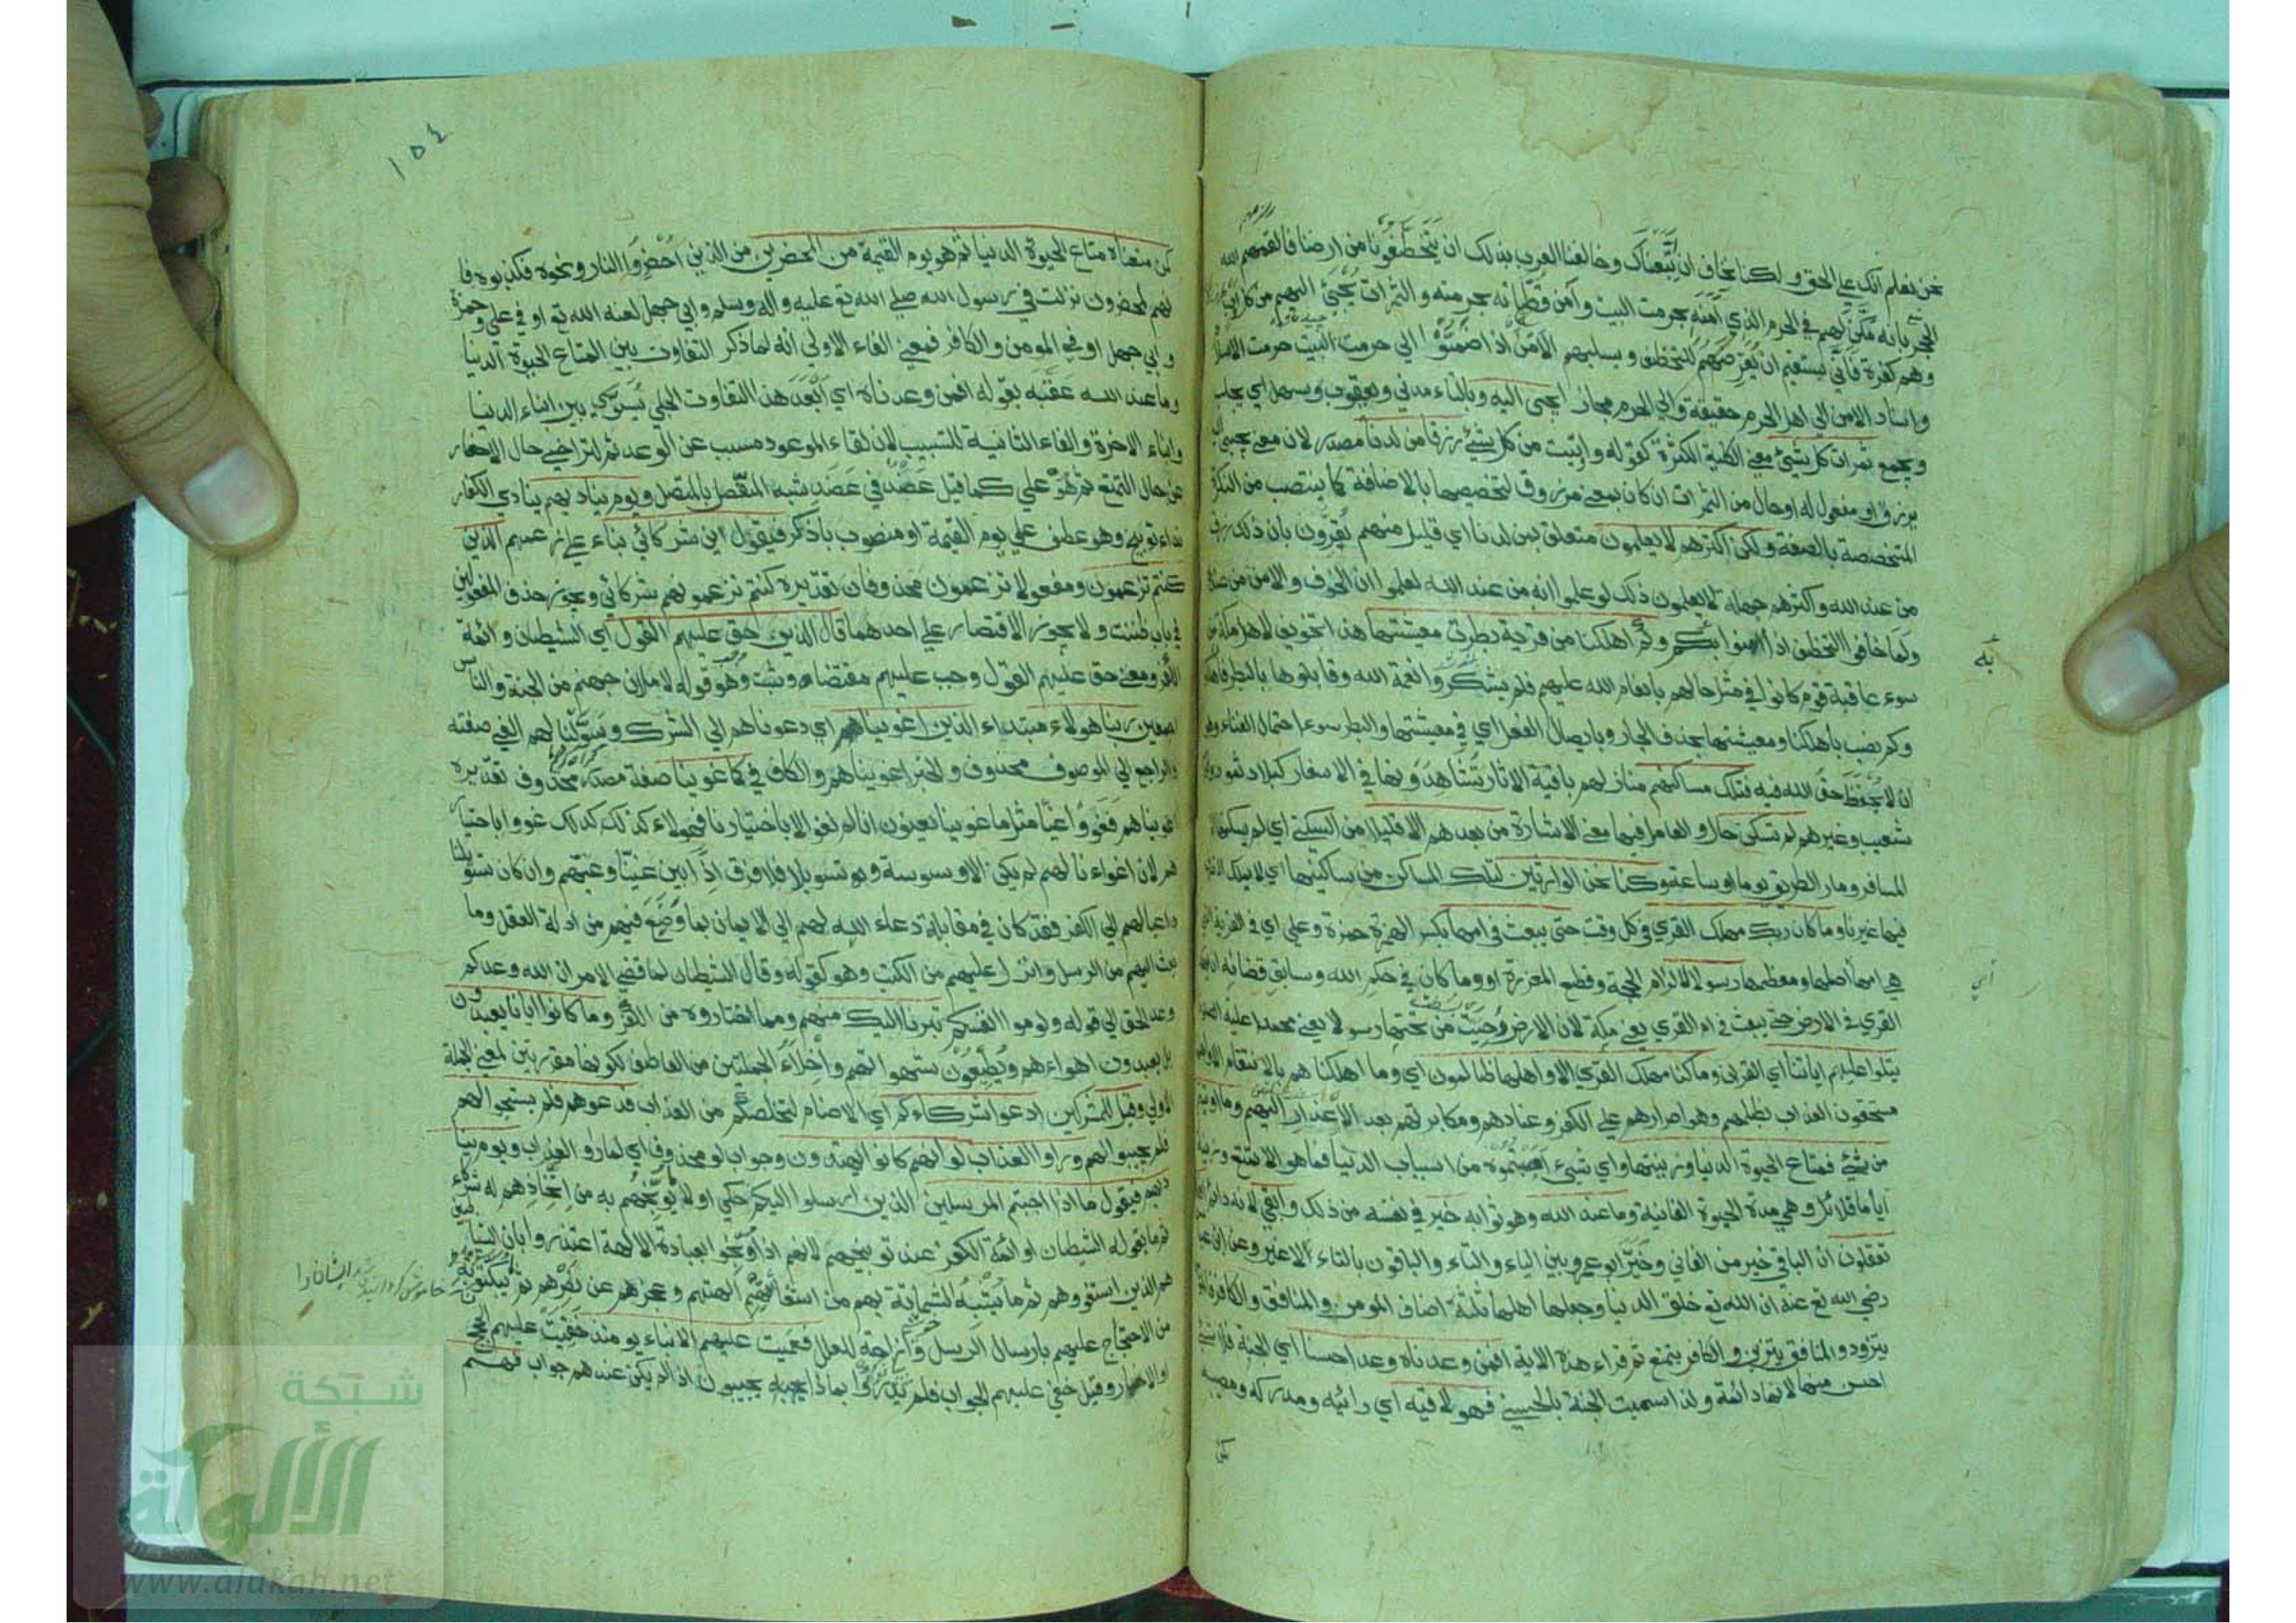 نحن نعلم انك علي الحق ولكنا نخاف ان اتبعناك وخالفنا العرب بذلك ان يتخطفونا من ارضنا فالقمهم الله
الحجر بانه مكن لهم في الحرم الذي امنه بحرمت البيت وآمن قطانه بحرمته والثمرات تجبي اليهم من كل
وهم كفرة فاني يستقيم ان يعرضهم للتخطف ويسلبهم الامن اذا ضموا الي حرمت البيت حرمت الاسلام
واسناد الامن الي اهل الحرم حقيقة والي الحرم مجاز يجبى اليه وبالتاء مدني ويعقوب وسهل اي يجلب
ويجمع ثمرات كل شيئ معني الكلية الكثرة كقوله واوتيت من كل شيئ رزقا من لدنا مصدر لان معني يجبي
يرزق او مفعول له او حال من الثمرات ان كان بمعني مرزوق لتخصيصها بالاضافة كما ينتصب من النكرة
المتخصصة بالصفة ولكن اكثرهم لا يعلمون متعلق بمن لدنا اي قليل منهم يقرون بان ذلك رزق
من عند الله واكثرهم جهلة لا يعلمون ذلك لو علموا انه من عند الله لعلموا ان الخوف والامن من عنده
ولما خافوا التخطف اذا امنوا به وكم اهلكنا من قرية بطرت معيشتها هذا تخويف لاهل مكة من
سوء عاقبة قوم كانوا في مثل حالهم بانعام الله عليهم فلم يشكروا نعمة الله وقابلوها بالبطر فاهلكوا
وكم نصب باهلكنا ومعيشتها بحذف الجار وايصال الفعل اي في معيشتها والبطر سوء احتمال الغناء وهو
ان لا يحفظ حق الله فيه فتلك مساكنهم منازلهم باقية الاثار يشاهدونها في الاسفار كبلاد ثمود وقوم
شعيب وغيرهم لم تسكن حال والعامل فيها معني الاشارة من بعدهم الا قليلا من السكني اي لم يسكنها الا
المسافر ومار الطريق يوما او ساعة وكنا نحن الوارثين لتلك المساكن من ساكنيها اي لا يملك التصرف
فيها غيرنا وما كان ربك مهلك القري في كل وقت حتي يبعث في امها بكسر الهمزة حمزة وعلي اي في القرية التي
هي امها اصلها ومعظمها رسولا لالزام الحجة وقطع المعذرة او وما كان في حكم الله وسابق قضائه ان يهلك
القري في الارض حتي يبعث في ام القري يعني مكة لان الارض دحيت من تحتها رسولا يعني محمدا عليه السلام
يتلوا عليهم اياتنا اي القران وما كنا مهلكي القري الا واهلها ظالمون اي وما اهلكناهم بالانتقام الا واهلها
مستحقون العذاب بظلمهم وهو اصرارهم علي الكفر وعنادهم ومكابرتهم بعد الاعذار اليهم وما اوتيتم
من شيئ فمتاع الحيوة الدنيا وزينتها واي شيئ اصبتموه من اسباب الدنيا فما هو الا تمتع وزينة
اياما قلائل وهي مدة الحيوة الفانية وما عند الله وهو ثوابه خير في نفسه من ذلك وابقي لانه دائم افلا
تعقلون ان الباقي خير من الفاني وخير ابو عمرو بين الياء والتاء والباقون بالتاء لا غير وعن ابن عباس
رضي الله تع عنه ان الله تع خلق الدنيا وجعل اهلها ثلثة اصناف المومن والمنافق والكافر فالمومن
يتزود والمنافق يتزين والكافر يتمتع ثم قراء هذه الاية افمن وعدناه وعدا حسنا اي الجنة فلا شيئ
احسن منها لانها دائمة ولذا سميت الجنة بالحسني فهو لاقيه اي رائيه ومدركه ومصيبه
به
اي
كمن
١٥٤
كمن متعناه متاع الحيوة الدنيا ثم هو يوم القيمة من المحضرين من الذين احضروا النار ونحوه فكذبوه فا
نهم لمحضرون نزلت في رسول الله صلي الله تع عليه واله وسلم وابي جهل لعنه الله تع او في علي وحمزة
وابي جهل او في المومن والكافر فمعني الفاء الاولي انه لما ذكر التفاوت بين المتاع الحيوة الدنيا
وما عند الله عقبه بقوله افمن وعدناه اي ابعد هذا التفاوت الجلي يسوي بين ابناء الدنيا
وابناء الاخرة والفاء الثانية للتسبيب لان لقاء الموعود مسبب عن الوعد ثم لتراخي حال الاحضار
عن حال التمتع ثم هو علي كما قيل عضد في عضد شبه المنفصل بالمتصل ويوم يناديهم ينادي الكفار
نداء توبيخ وهو عطف علي يوم القيمة او منصوب باذكر فيقول اين شركائي بناء علي زعمهم الذين
كنتم تزعمون ومفعولا تزعمون محذوفان تقديره كنتم تزعمونهم شركائي ويجوز حذف المفعولين
في باب ظننت ولا يجوز الاقتصار علي احدهما قال الذين حق عليهم القول اي الشيطان وائمة
الكفر ومعني حق عليهم القول وجب عليهم مقتضاه وثبت وهو قوله لاملان جهنم من الجنة والناس
اجمعين ربنا هولاء مبتداء الذين اغوينا هم اي دعوناهم الي الشرك وسولنا لهم الغي صفته
والراجع الي الموصوف محذوف والخبر اغويناهم والكاف في كما غوينا صفة مصدر محذوف تقديره
اغويناهم فغووا غيا مثل ما غوينا يعنون انا لم نغو الا باختيارنا فهولاء كذلك غووا باختيار
هم لان اغواءنا لهم لم يكن الا وسوسة وتسويلا فلا فرق اذا بين غينا وغيهم وان كان تسويلنا
داعيا لهم الي الكفر فقد كان في مقابلة دعاء الله لهم الي الايمان بما وضع فيهم من ادلة العقل وما
بعث اليهم من الرسل وانزل عليهم من الكتب وهو كقوله وقال الشيطان لما قضي الامر ان الله وعدكم
وعد الحق الي قوله ولوموا انفسكم تبرانا اليك منهم ومما اختاروه من الكفر وما كانوا ايانا يعبدون
بل يعبدون اهواءهم ويطيعون شهواتهم واخلاء الجملتين من العاطف لكونهما مقررتين لمعني الجملة
الاولي وقيل للمشركين ادعوا شركاءكم اي الاصنام لتخلصكم من العذاب فدعوهم فلم يستجيبوا لهم
فلم يجيبوا لهم وراوا العذاب لو انهم كانوا يهتدون وجواب لو محذوف اي لما راوا العذاب ويوم ينا
ديهم فيقول ماذا اجبتم المرسلين الذين ارسلوا اليكم حكي اولا ما يوبخهم به من اتخاذهم له شركاء
ثم ما يقوله الشيطان او ائمة الكفر عند توبيخهم لانهم اذا وبخوا بعبادة الالهة اعتذروا بان الشياطين
هم الذين استغووهم ثم ما يشبه الشماتة بهم من استغاثتهم الهتهم وعجزهم عن نصرهم ثم يبكتون به
من الاحتجاج عليهم بارسال الرسل وازاحة العلل فعميت عليهم الانباء يومئذ خفيت عليهم الحجج
او الاخبار وقيل خفي عليهم الجواب فلم يدروا بماذا يجيبون اذ لم يكن عندهم جواب فهم
خاموش كردانيدن ايشانرا
شبكة
الألوكة
www.alukah.net